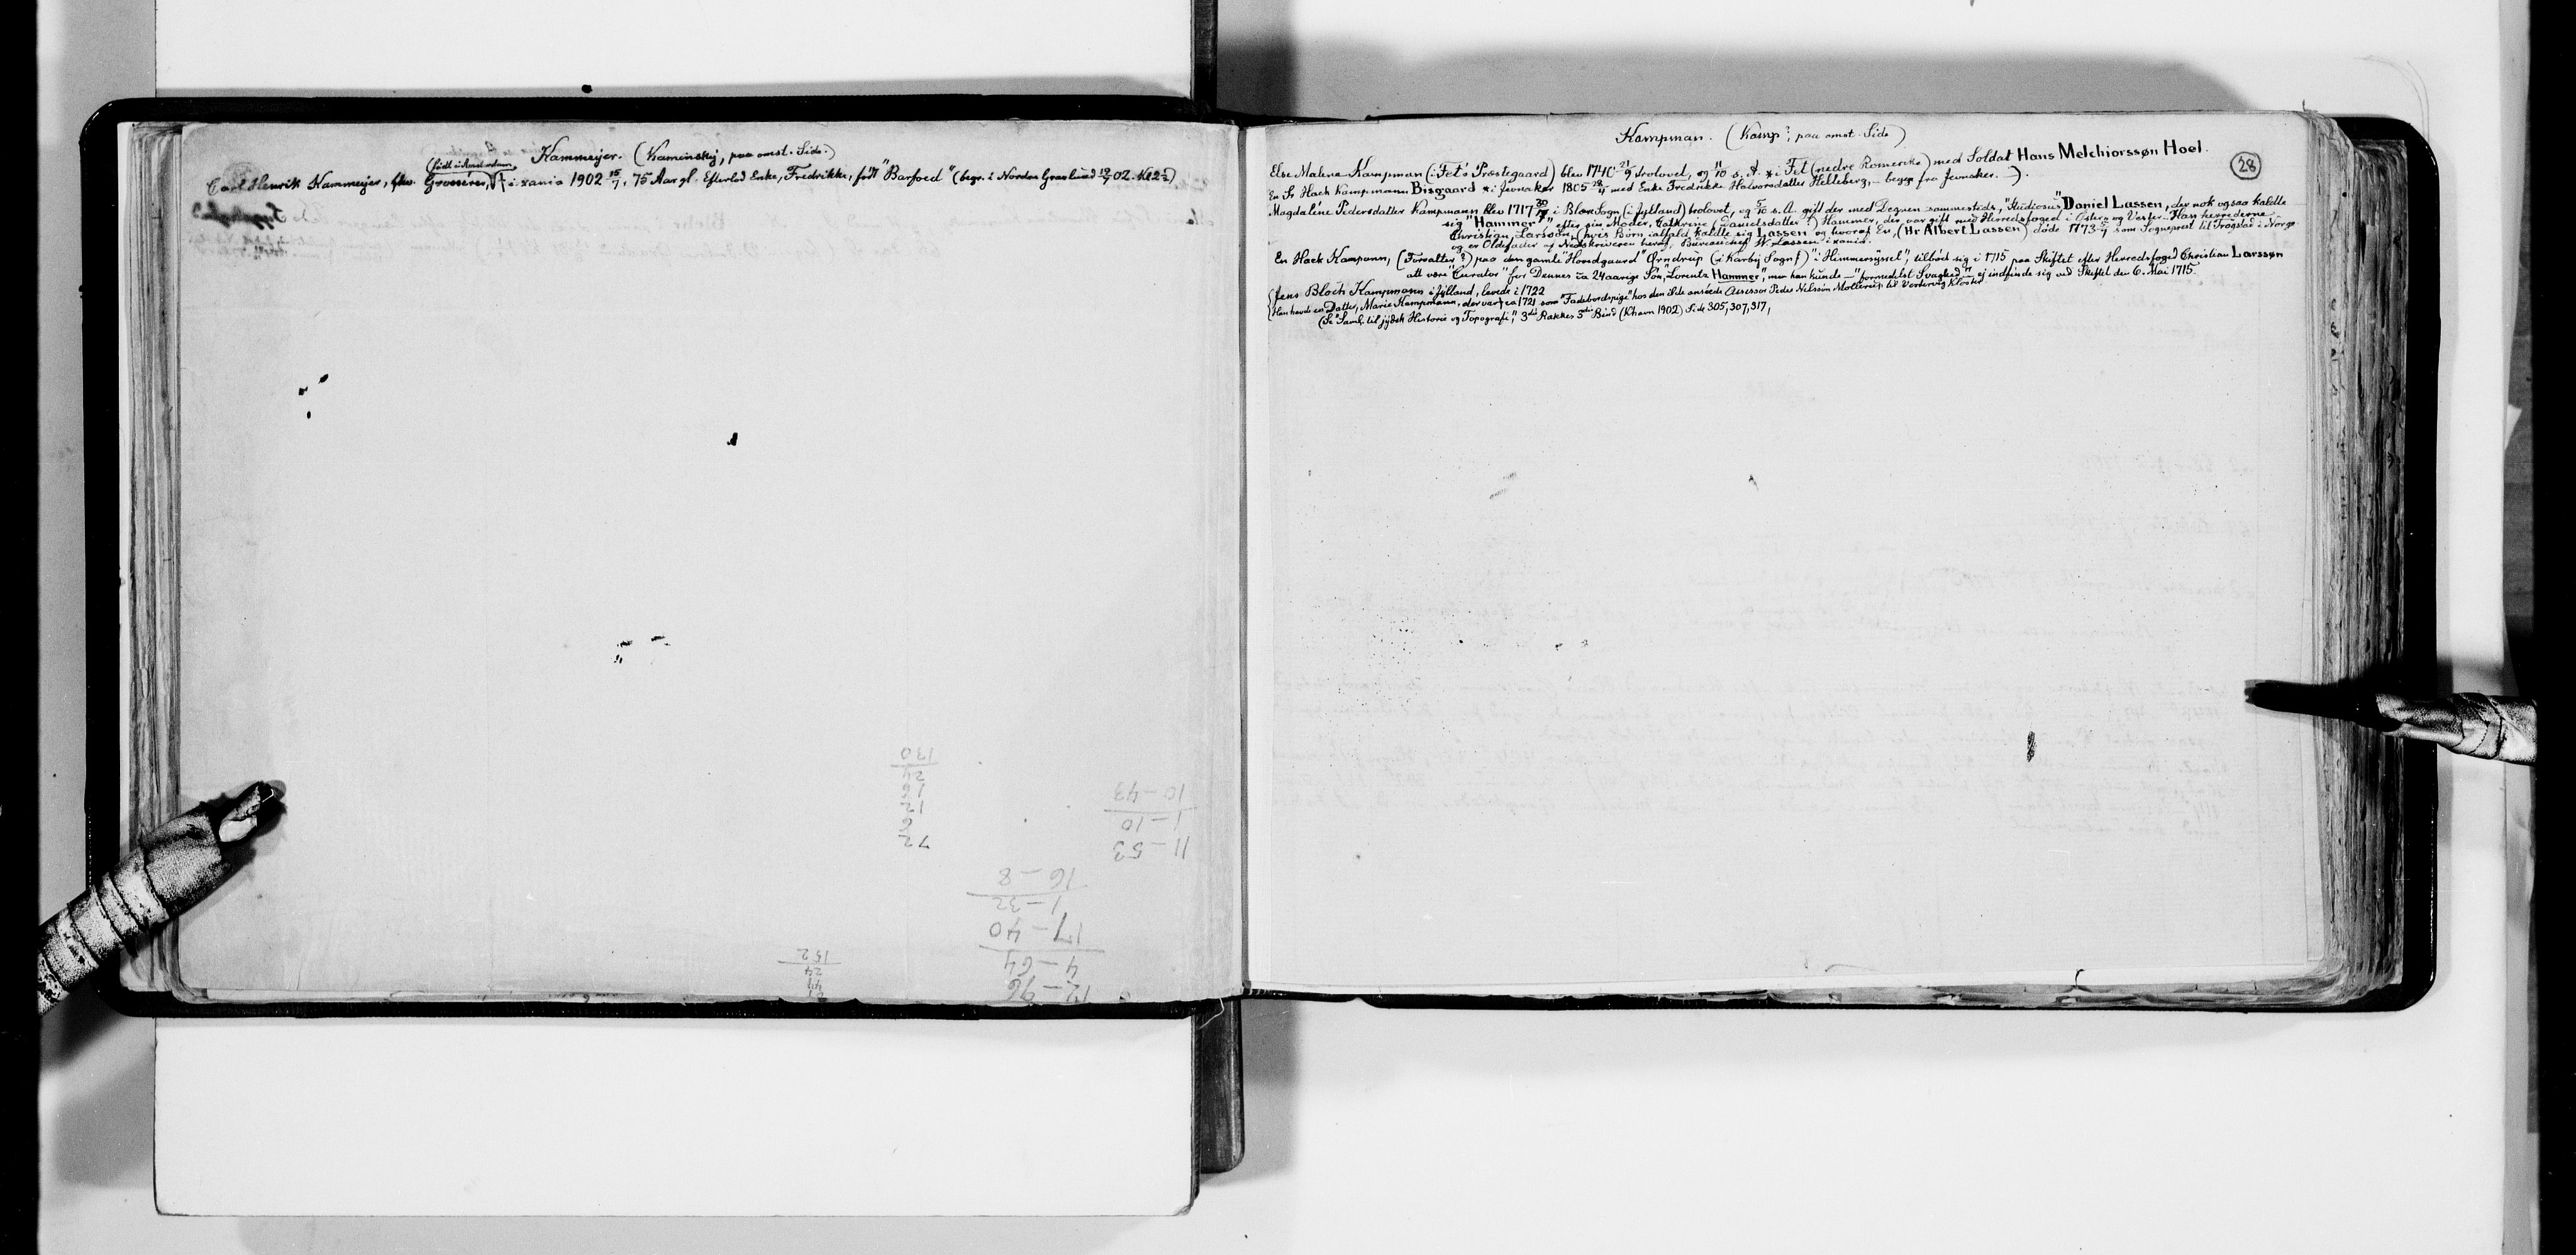 Kammeyer. (Kaminsky, paa omst. Side.)
(født i Amsterdam
Carl Henrik Kammeyer, fhv. Grosserer, † i xania 1902 15/7, 75 Aar gl. Efterlod Enke, Fredrikke, født "Barfoed" (begr. i Nordre Gravlund 19/7 02. Kl 2½)
130
24
16
12
6
72
10-43
1-10
11-53
16-8
1-32
17-40
4-64
12-96
152
24
Kampman. (Kamp?, paa omst. Side)
28
Else Malene Kampman (i Fet's Præstegaard) blev 1740 21/9 trolovet, og 11/10 s. A. * i Fet (nedre Romerike) med Soldat Hans Melchiorssøn Hoel.
En Fr Hack Kampmann Bisgaard * i Jevnaker 1805 28/4 med Enke Fredrikke Halvorsdatter Helleberg, – begge fra Jevnaker. –).
Magdaléne Pedersdatter Kampmann blev 1717 30/7 i Blære Sogn (i Jylland) trolovet, og 5/10 s. A. gift der med Degnen sammesteds, "Studiosus" Daniel Lassen, der nok ogsaa kaldte
sig "Hammer" efter sin Moder, Cathrine (Danielsdatter?) Hammer, der var gift med Herredsfoged i Øster- og Vester-Han herrederne
Christian Larssøn, (hvis Børn ialfald kaldte sig Lassen og hvoraf En, (Hr Albert Lassen) døde 1773 5/7 som Sogneprest til Trøgstad i Norge
og er Oldefader af Nedskriveren heraf, Bureauchef W. Lassen i xania.
En Hack Kampann, (Forvalter?) paa den gamle "Hovedgaard" Ørndrup (i Karby Sogn?) "i Himmersyssel", tilbød sig i 1715 paa Skiftet efter Herredsfoged Christian Larssøn
att være "Curator" for Dennes ca 24aarige Søn, "Lorentz Hammer", men han kunde – "formedelst Svaghed" – ej indfinde sig ved Skiftet den 6. Mai 1715.
Jens Bloch Kampmann i Jylland, levede i 1722
Han havde en Datter, Marie Kampmann, der var ca 1721 som "Fadebordspige" hos den ilde anséede Assessor Peder Nielssøn Mollerup til Vestervig Kloster
(Se "Saml. til jydsk Historie og Topografi", 3die Rækkes 3die Bind (Khavn 1902) Side 305, 307, 317,